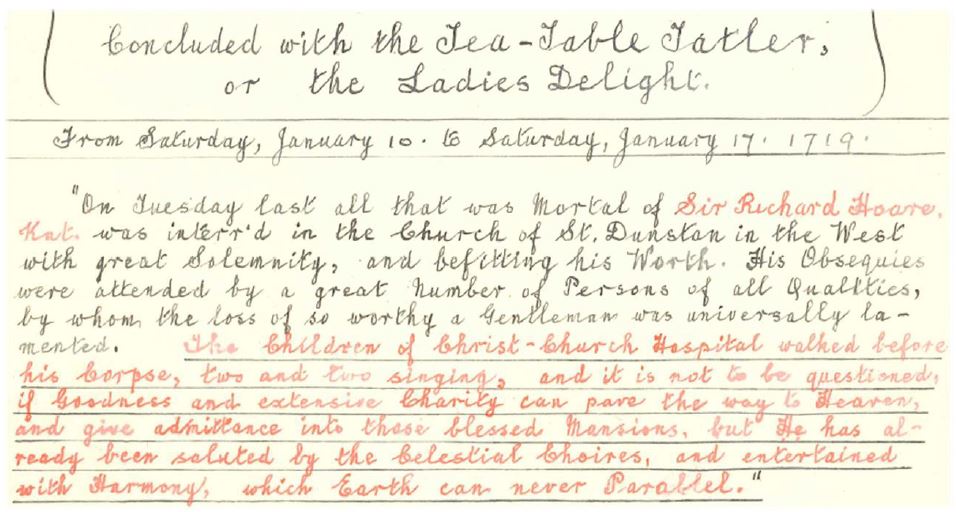 Concluded with the Tea-Table Tatler,
or the Ladies Delight.
From Saturday, January 10. to Saturday, January 17. 1719.
"On Tuesday last all that was Mortal of Sir Richard Hoare,
Knt. was interr'd in the Church of St. Dunstan in the West
with great Solemnity, and befitting his Worth. His Obsequies
were attended by a great Number of Persons of all Qualities,
by whom the loss of so worthy a Gentleman was universally la-
mented. The Children of Christ-Church Hospital walked before
his Corpse, two and two singing, and it is not to be questioned,
if Goodness and extensive Charity can pave the way to Heaven,
and give admittance into those blessed Mansions, but He has al-
ready been saluted by the Celestial Choires, and entertained
with Harmony, which Earth can never Parallel."